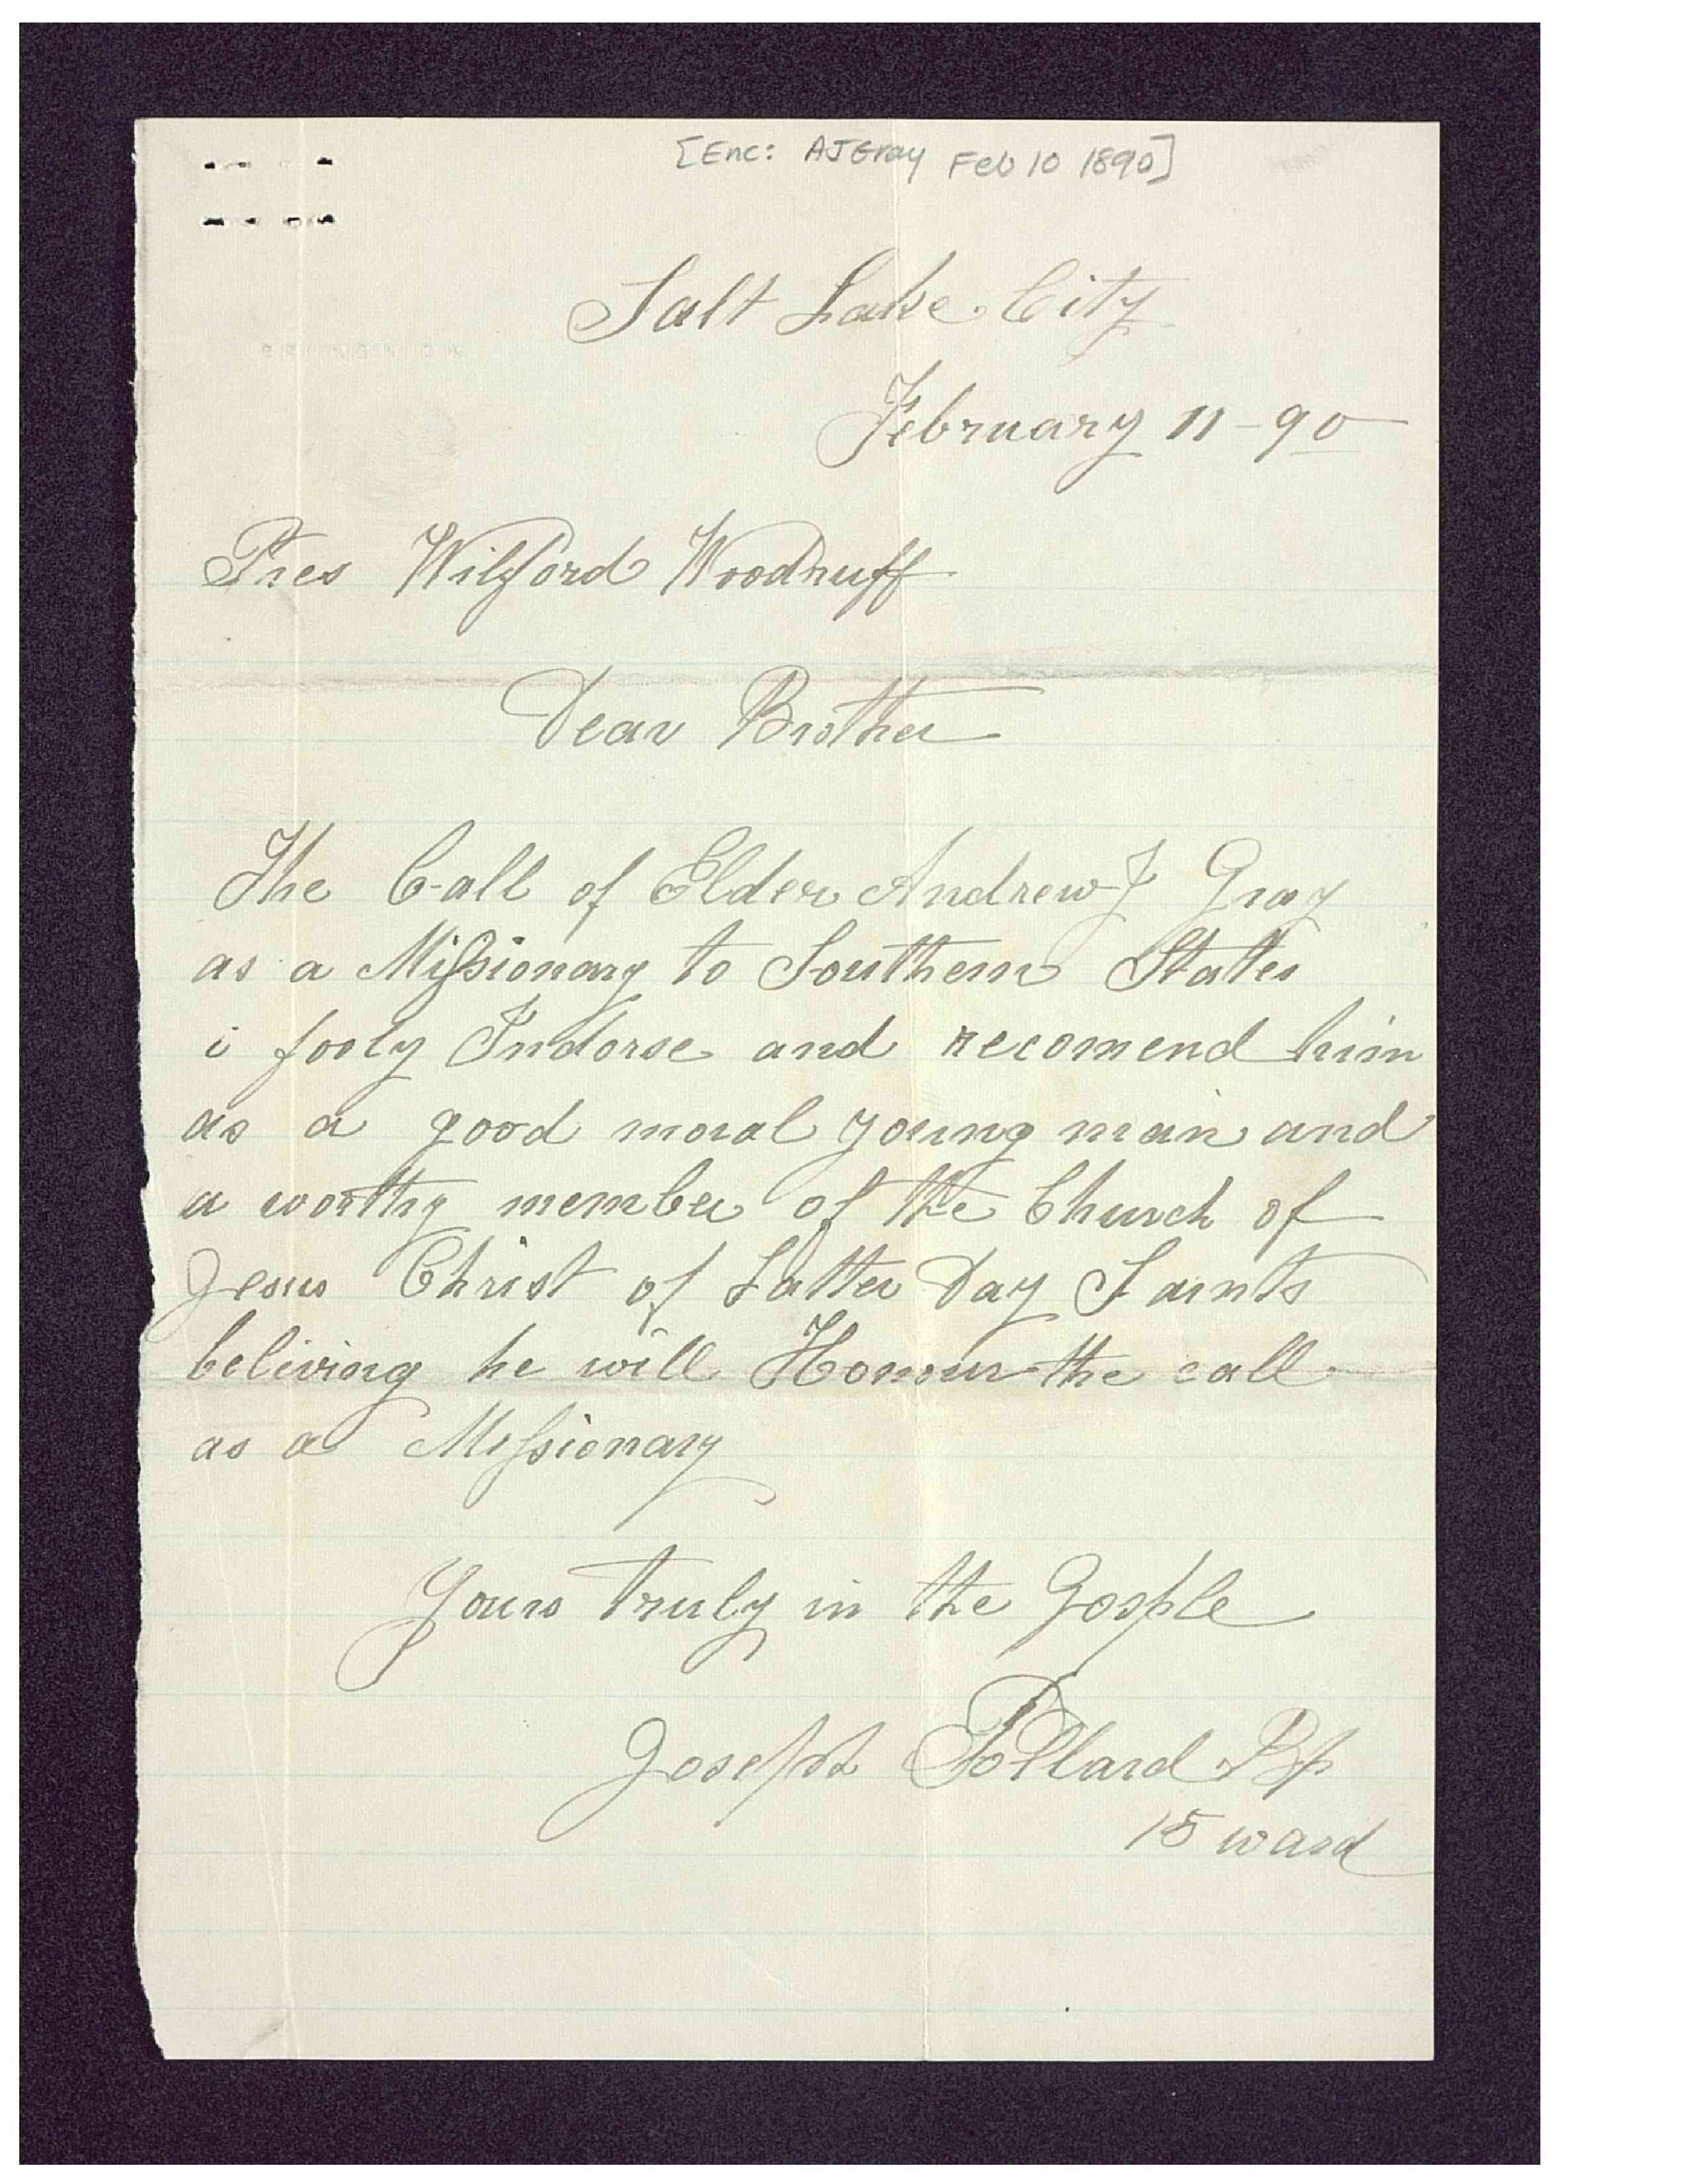 [Enc: AJGray Feb 10 1890]
Salt Lake City
February 11 - 90
Pres Wilford Woodruff
Dear Brother
The Call of Elder Andrew J Gray
as a Missionary to Southern States
i fooly Indorse and recomend him
as a good moral young man and
a worthy member of the Church of
Jesus Christ of Latter Day Saints
beliving he will Honour the call
as a Missionary
Yours truly in the Gosple
Joseph Pollard Bp
15 ward